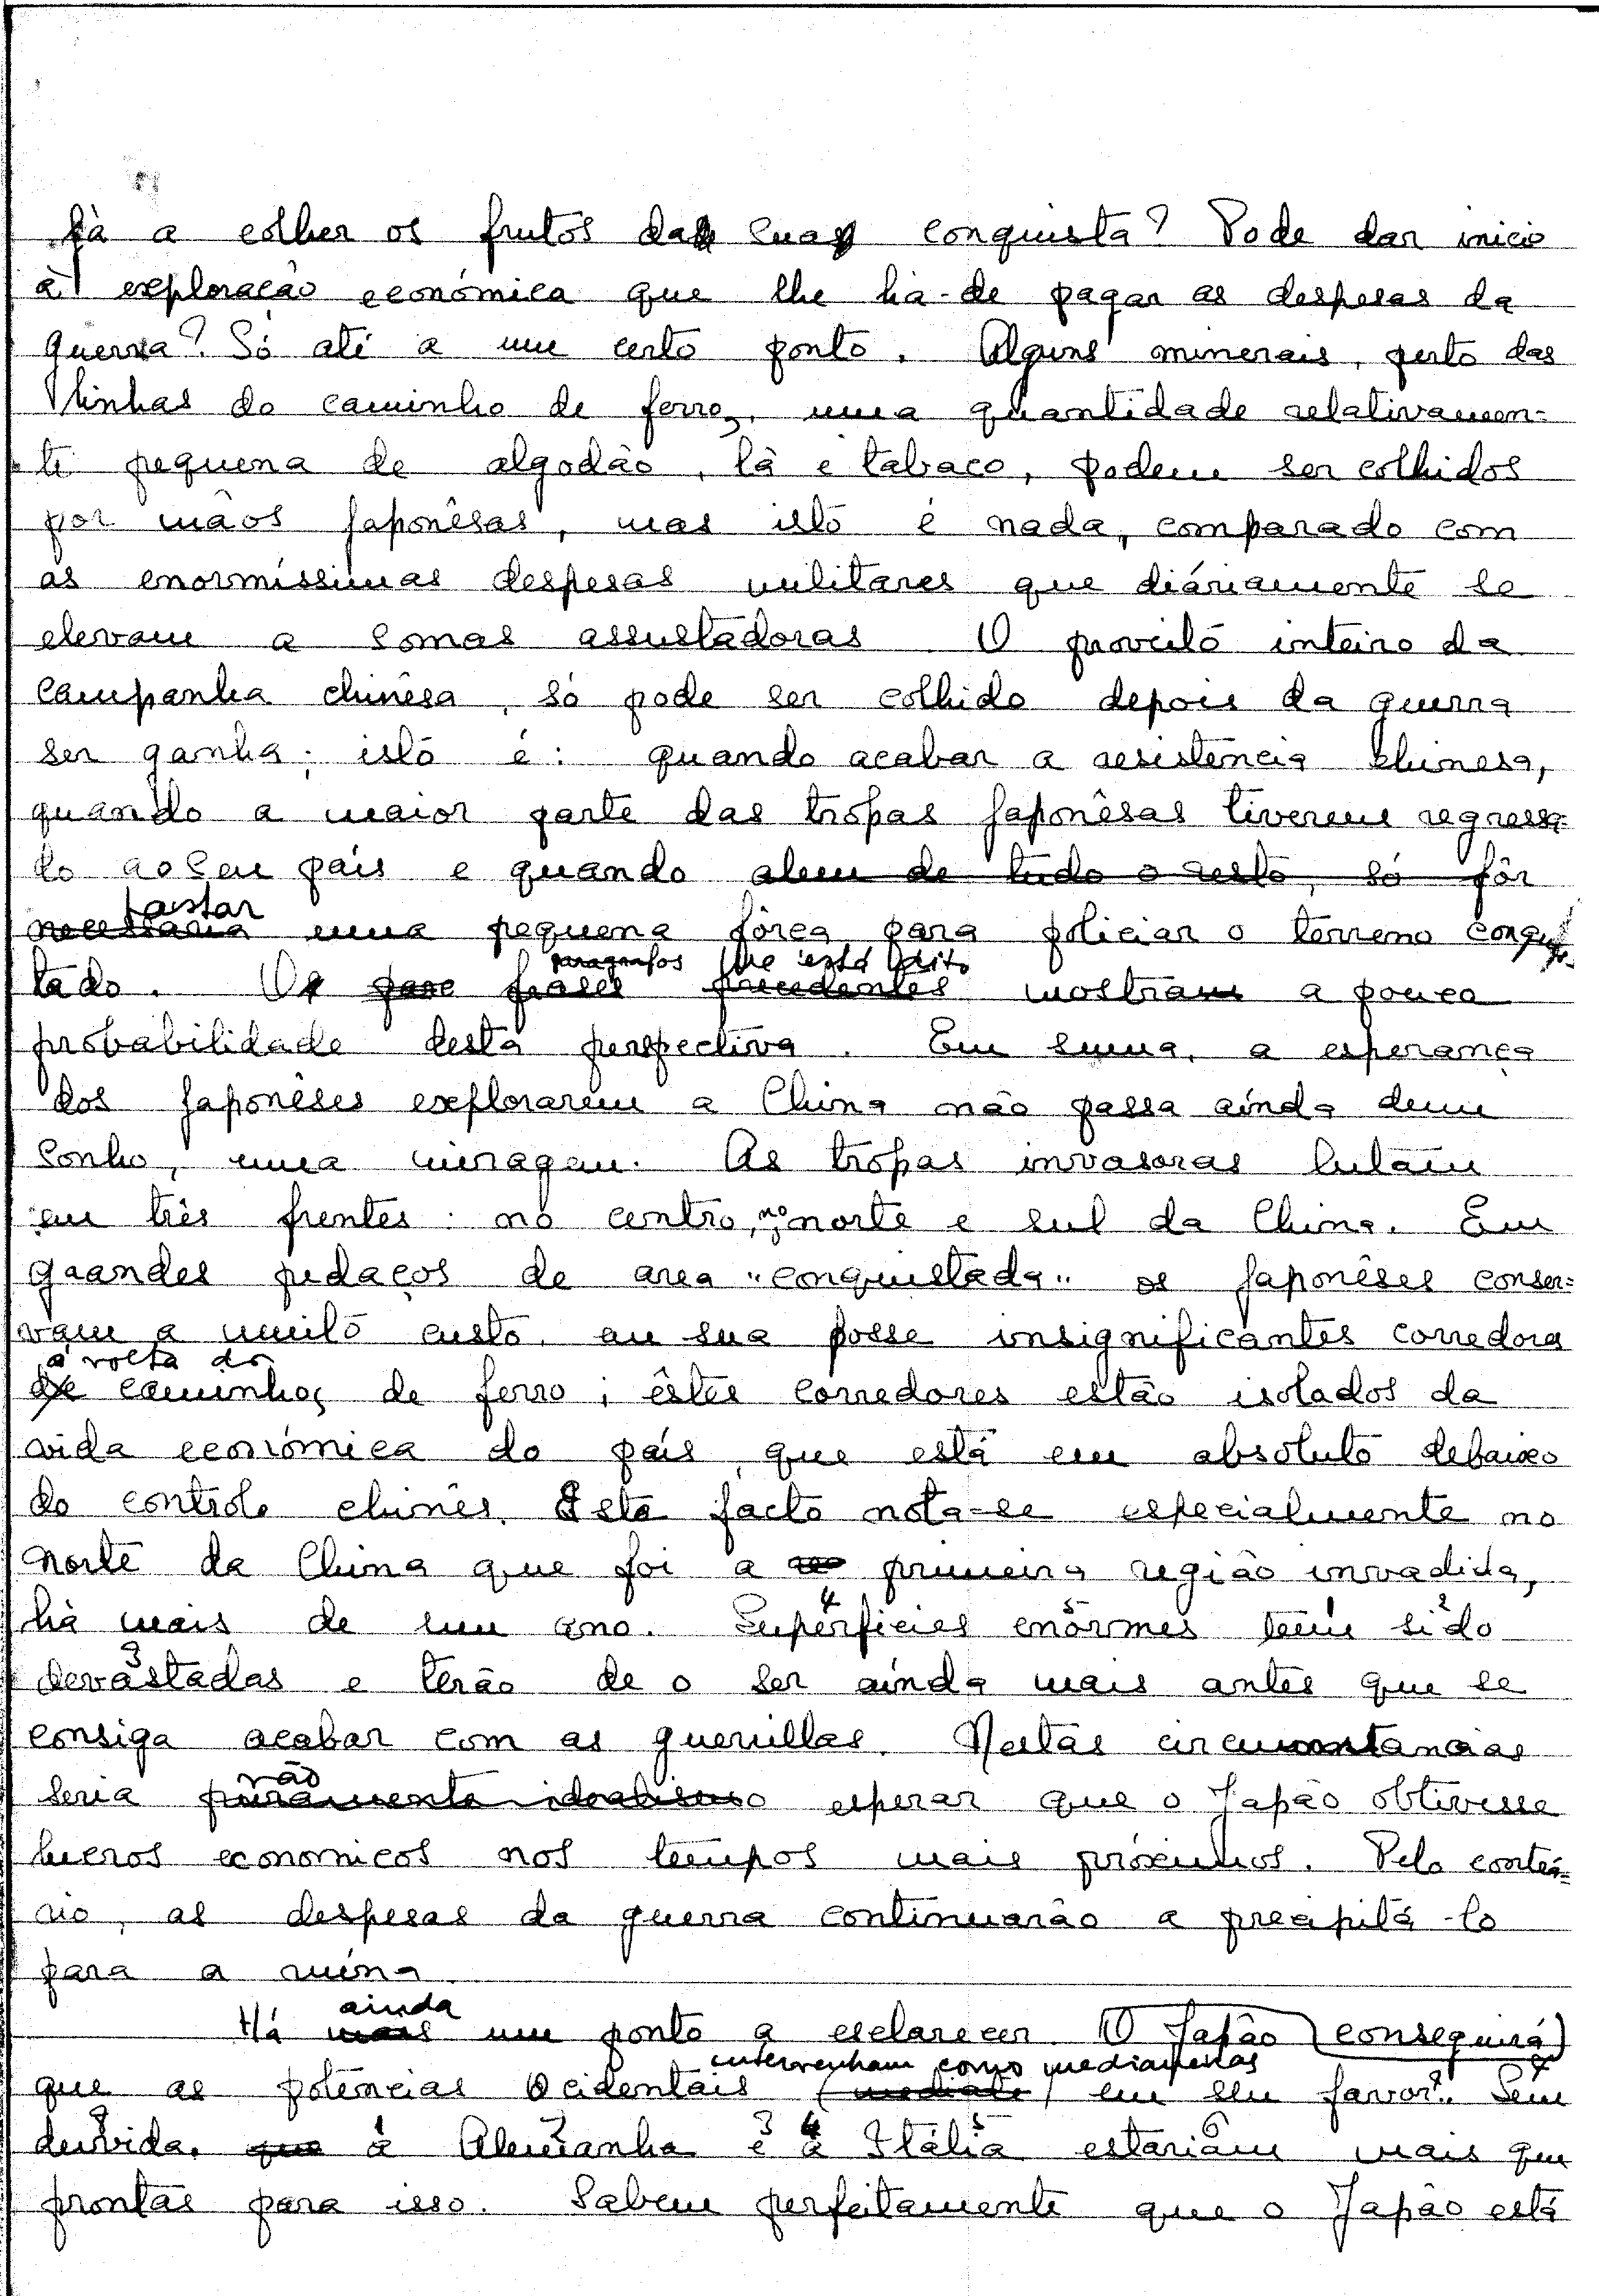 já a colher os frutos da sua conquista? Pode dar inicio
à exploração económica que lhe há-de pagar as despesas da
guerra? Só até a um certo ponto. Alguns minerais, perto das
linhas do caminho de ferro, uma quantidade relativamen=
te pequena de algodão, lã e tabaco, podem ser colhidos
por mãos japonêsas, mas isto é nada, comparado com
as enormíssimas despesas militares que diáriamente se
elevam a somas assustadoras. O proveito inteiro da
campanha chinêsa, só pode ser colhido depois da guerra
ser ganha; isto é: quando acabar a resistência chinesa,
quando a maior parte das tropas japonêsas tiverem regressa=
do ao seu país e quando alem de tudo o resto, só fôr
bastar
necessaria uma pequena fôrça para policiar o terreno conquis-
paragrafos lhe está dito
tado. O frases precedentes mostram a pouca
probabilidade desta perspectiva. Em suma, a esperança
dos japonêses explorarem a China não passa ainda dum
sonho, uma miragem. As tropas invasoras lutam
em três frentes: no centro, no norte e sul da China. Em
grandes pedaços de area "conquistada" os japonêses conser=
vam a muito custo, em sua posse insignificantes corredores
à volta do
de caminhos de ferro; êstes corredores estão isolados da
vida económica do país, que está em absoluto debaixo
do controle chinês. Este facto nota-se especialmente no
norte da China que foi a primeira região invadida,
4 5 1 2
há mais de um ano. Superficies enormes teem sido
3
devastadas e terão de o ser ainda mais antes que se
consiga acabar com as guerrillas. Nestas circumstancias
vão
seria puramente idealismo esperar que o Japão obtivesse
lucros economicos nos tempos mais próximos. Pelo contrá=
rio, as despesas da guerra continuarão a precipitá-lo
para a ruína.
ainda
Há mais um ponto a esclarecer. O Japão conseguirá
intervenham como medianeiras
que as potências Ocidentais (mediate) em seu favor? Sem
7 8 1 2 3 4 5 6
duvida, que a Alemanha e a Itália estariam mais que
prontas para isso. Sabem perfeitamente que o Japão está